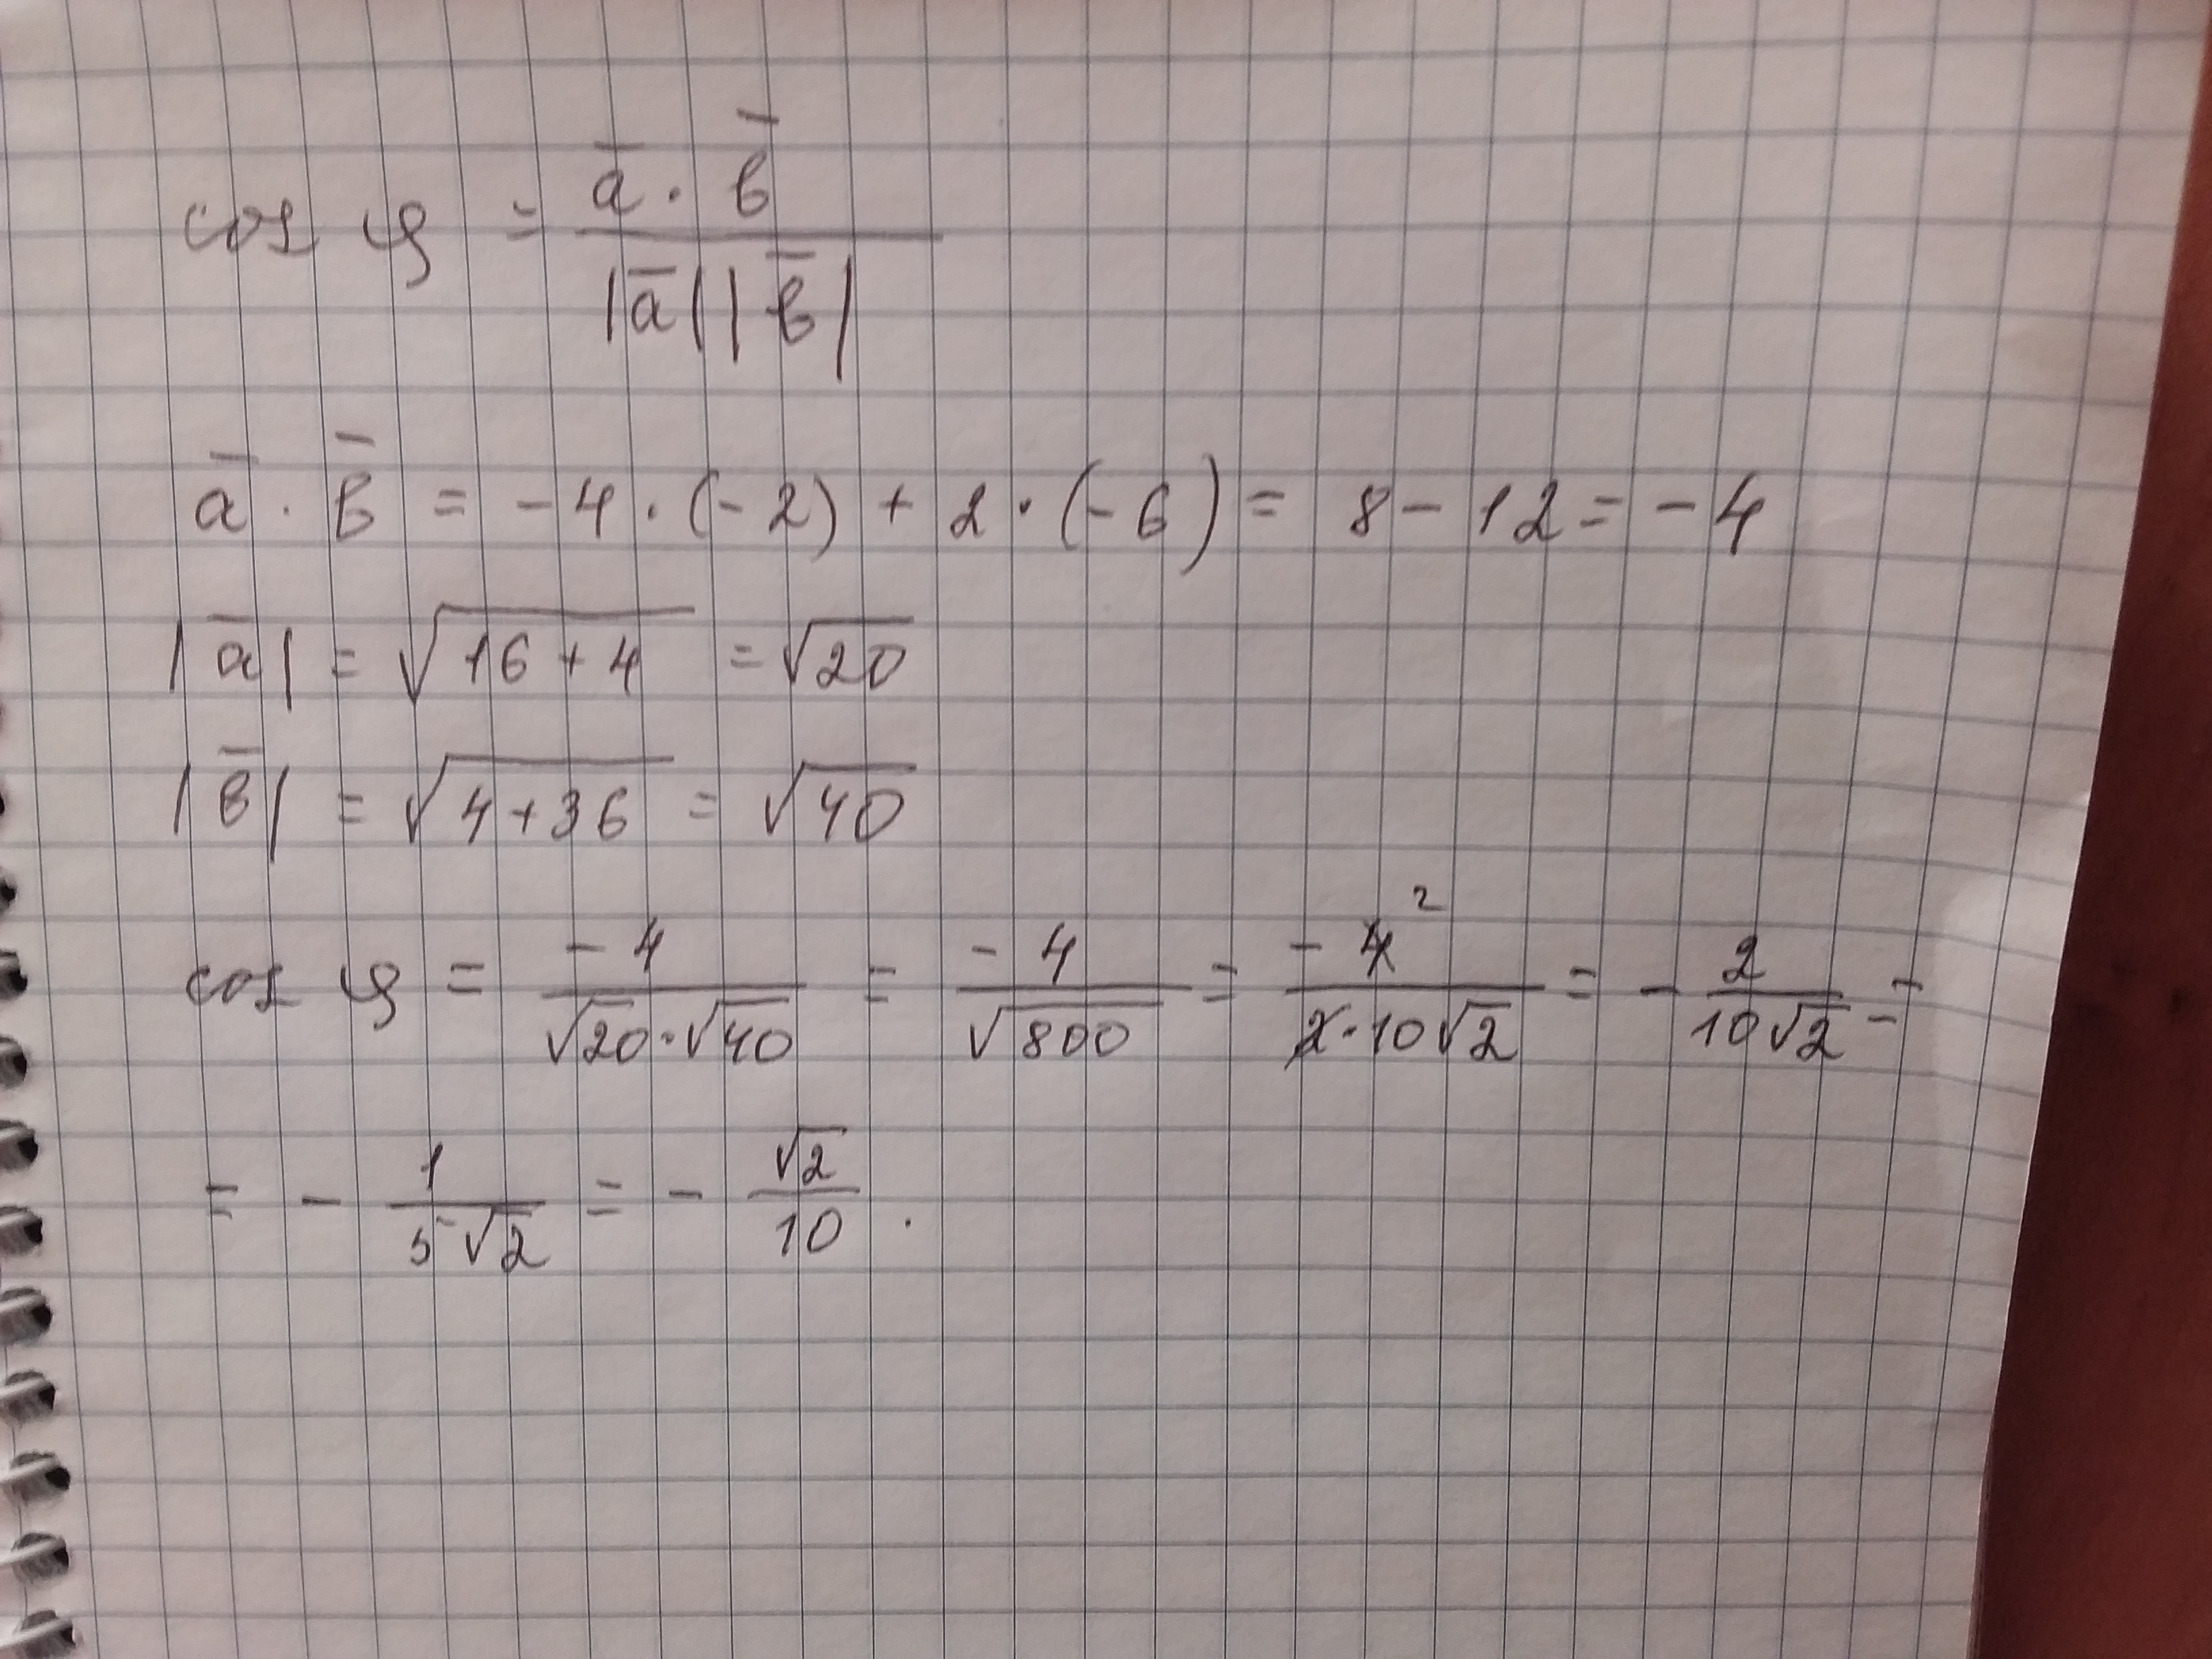 cos φ = a̅ · b̅ / |a̅| |b̅|
a̅ · b̅ = -4 · (-2) + 2 · (-6) = 8 - 12 = -4
|a̅| = √(16 + 4) = √20
|b̅| = √(4 + 36) = √40
cos φ = -4 / (√20 · √40) = -4 / √800 = -4² / (2 · 10√2) = - 2 / (10√2) =
= - 1 / (5√2) = - √2 / 10 .